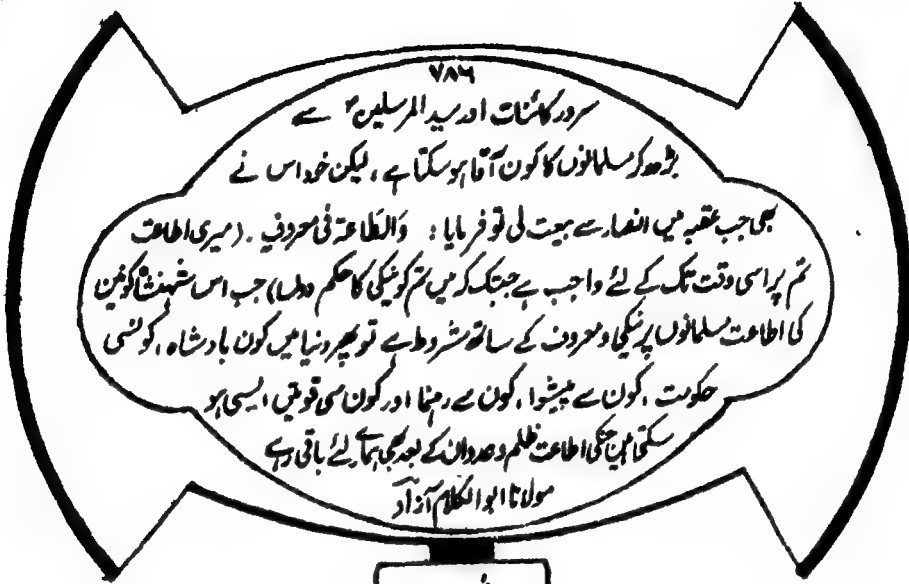 ۷۸۶
سرور کائنات اور سید المرسلینؐ سے
بڑھ کر مسلمانوں کا کون آقا ہو سکتا ہے، لیکن خود اس نے
بھی جب عقبہ میں انصار سے بیعت لی تو فرمایا: وَالطَّاعَة فی معروفٍ۔ (میری اطاعت
تم پر اسی وقت تک کے لئے واجب ہے جبتک کہ میں تم کو نیکی کا حکم دوں) جب اس شہنشاہ کونین
کی اطاعت مسلمانوں پر نیکی و معروف کے ساتھ مشروط ہے تو پھر دنیا میں کون بادشاہ، کونسی
حکومت، کون سے پیشوا، کون سے رہنما اور کون سی قوتیں ایسی ہو
سکتی ہیں جنکی اطاعت ظلم و عدوان کے بعد بھی ہمارے لئے باقی رہے
مولانا ابوالکلام آزاد